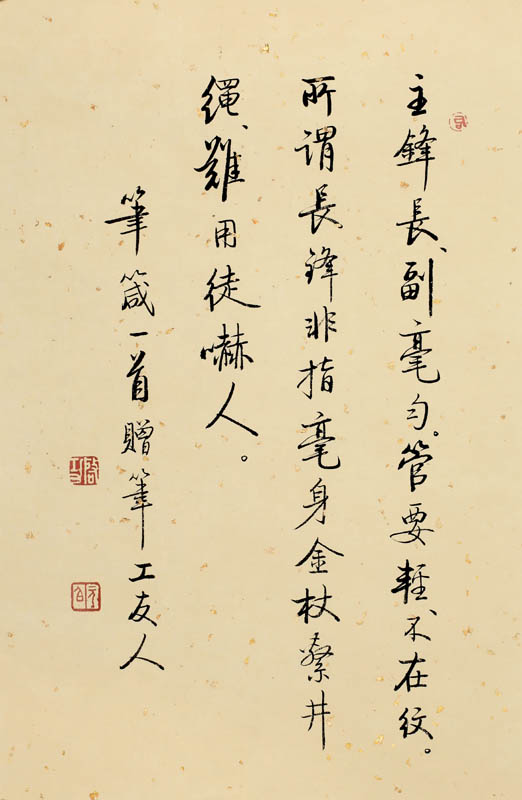 主鋒長、副毫勻。管要輕、不在紋。
所謂長鋒非指毫身金杖繫井
繩、難用徒嚇人。
筆箴一首贈筆工友人